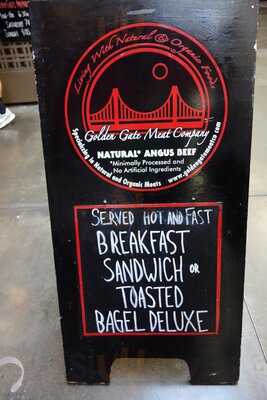 Living With Natural & Organic Foods
Golden Gate Meat Company
NATURAL* ANGUS BEEF
*Minimally Processed and
No Artificial Ingredients
Specializing in Natural and Organic Meats
www.goldengatemeatco.com
SERVED HOT AND FAST
BREAKFAST
SANDWICH OR
TOASTED
BAGEL DELUXE